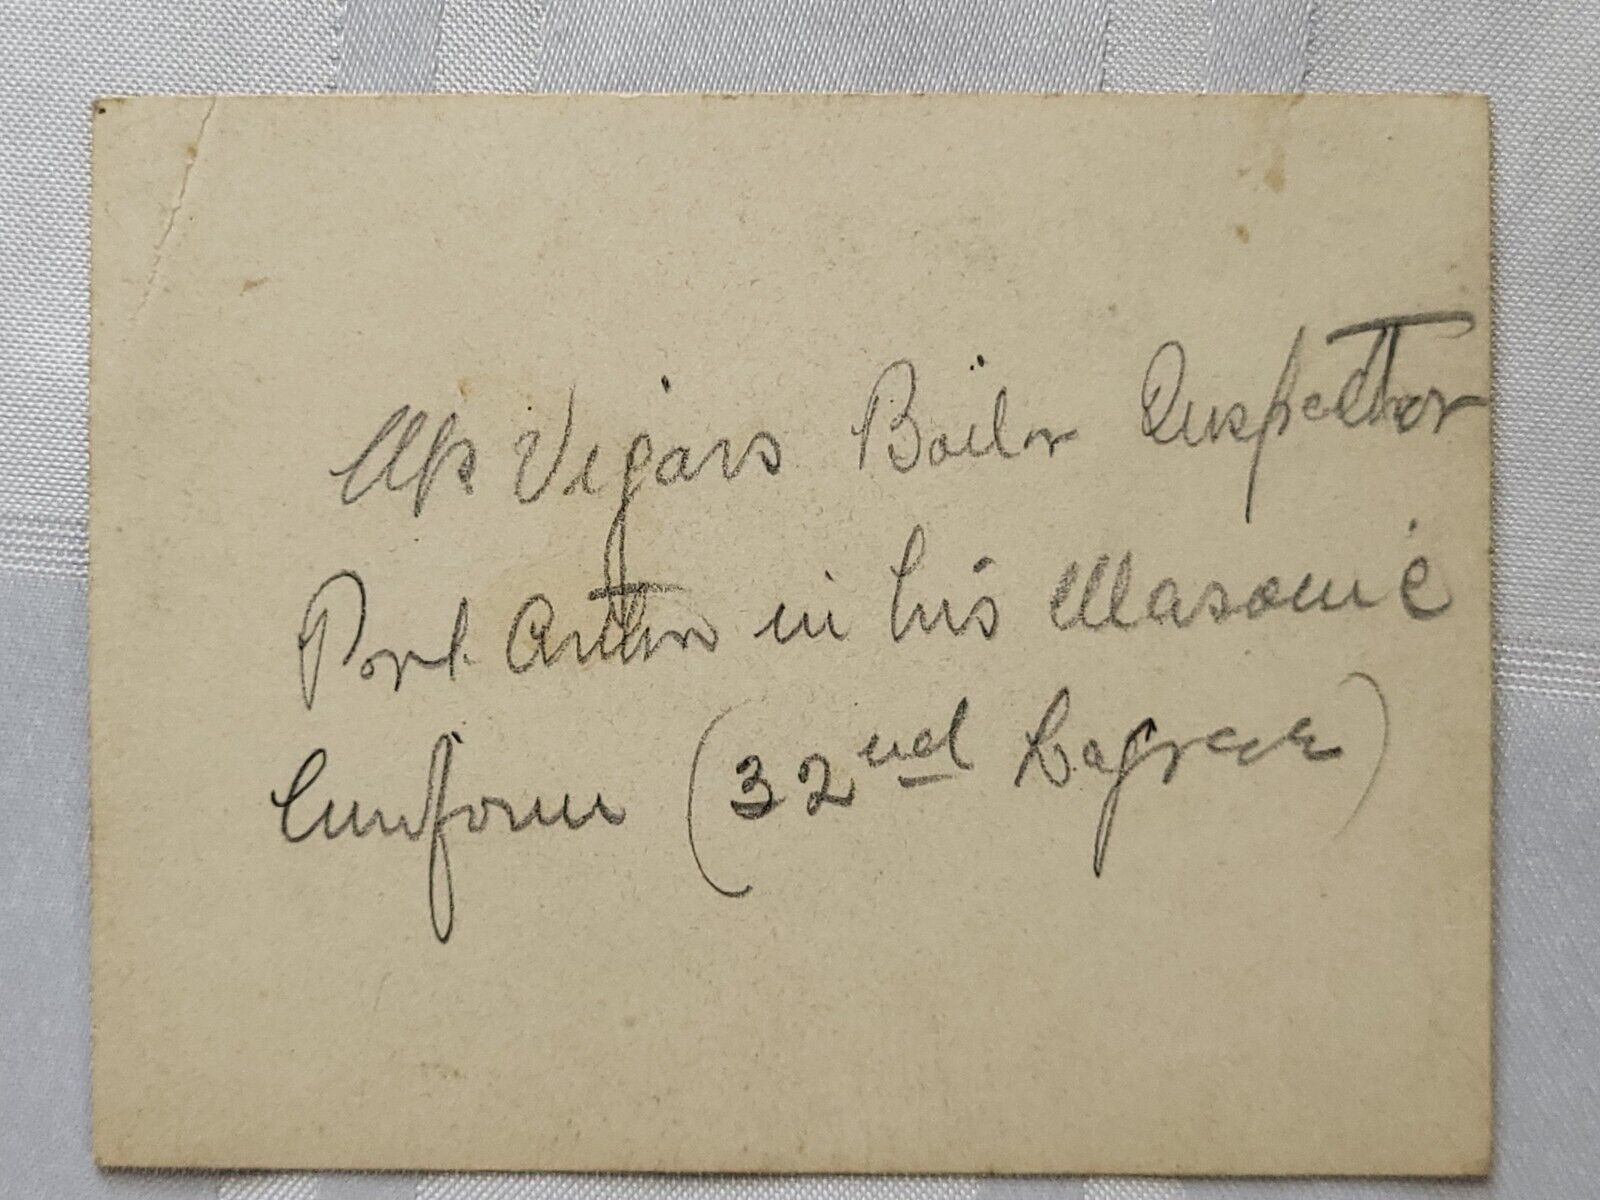 Mr Vigars Boiler Inspector
Port Arthur in his Masonic
Uniform (32nd Degree)